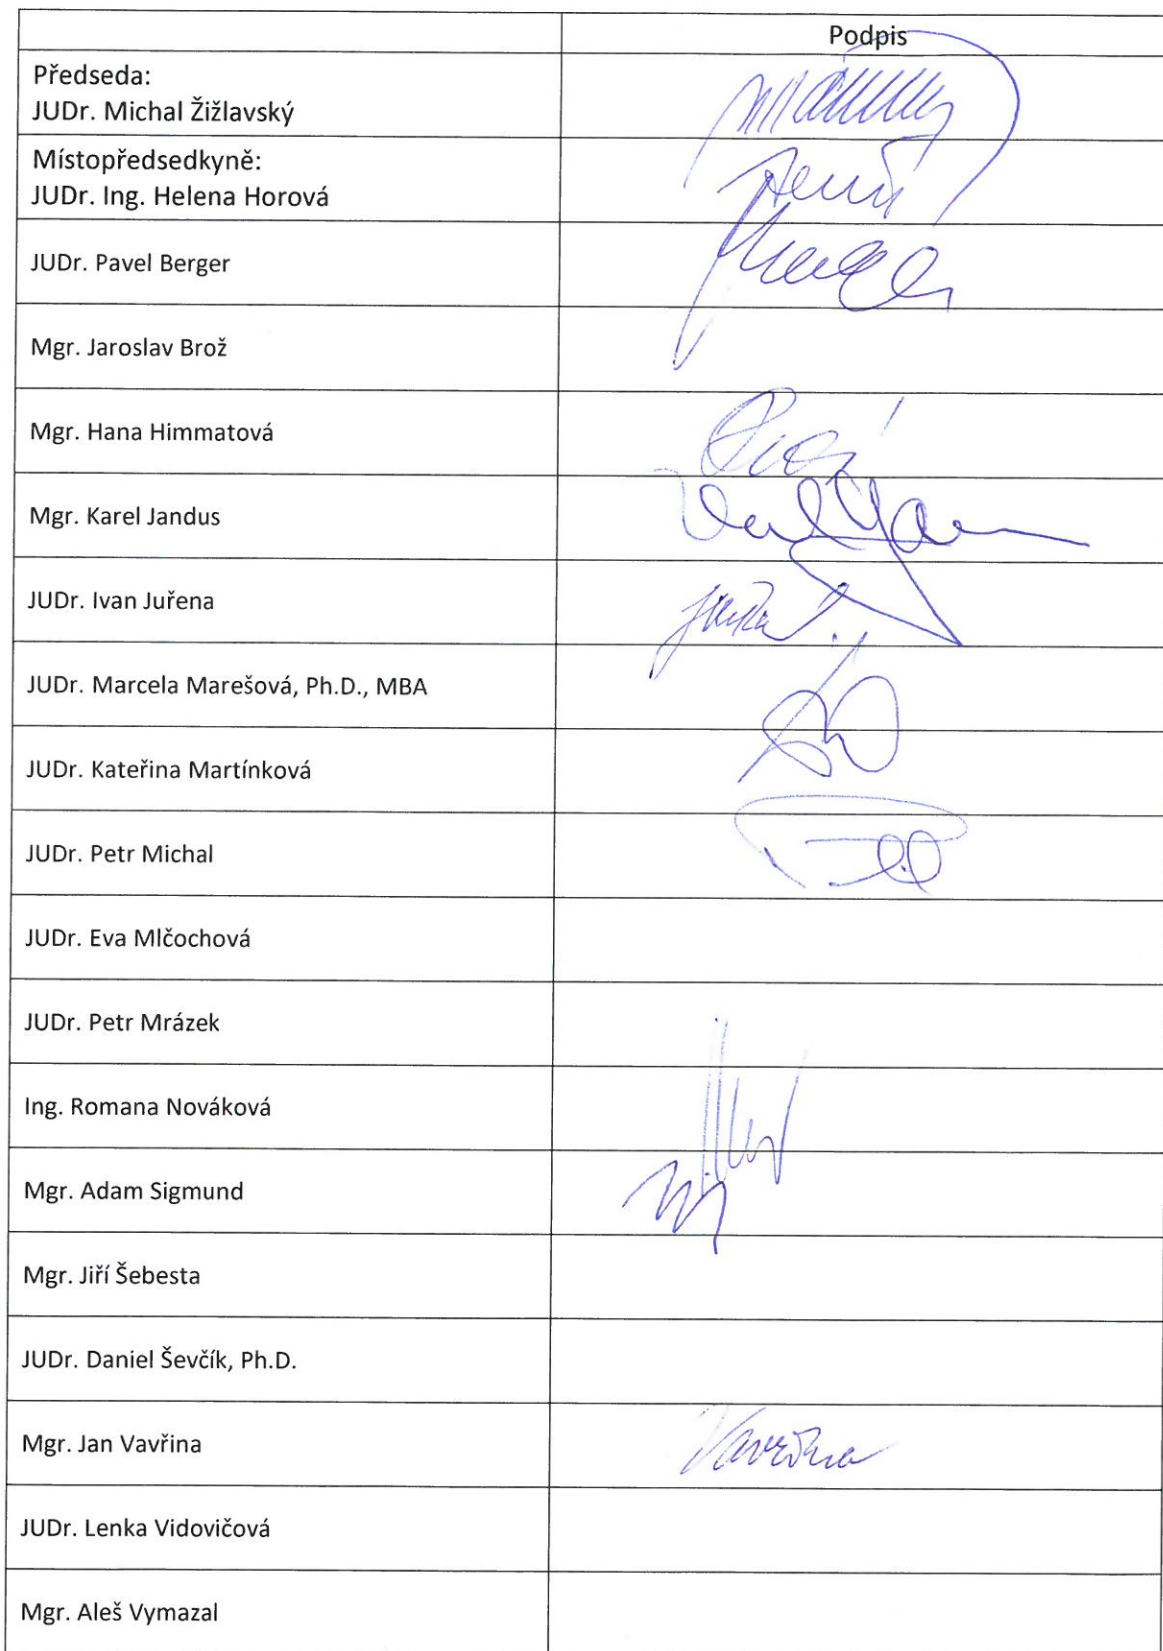 Podpis
Předseda:
JUDr. Michal Žižlavský
Místopředsedkyně:
JUDr. Ing. Helena Horová
JUDr. Pavel Berger
Mgr. Jaroslav Brož
Mgr. Hana Himmatová
Mgr. Karel Jandus
JUDr. Ivan Juřena
JUDr. Marcela Marešová, Ph.D., MBA
JUDr. Kateřina Martínková
JUDr. Petr Michal
JUDr. Eva Mlčochová
JUDr. Petr Mrázek
Ing. Romana Nováková
Mgr. Adam Sigmund
Mgr. Jiří Šebesta
JUDr. Daniel Ševčík, Ph.D.
Mgr. Jan Vavřina Vavřina
JUDr. Lenka Vidovičová
Mgr. Aleš Vymazal